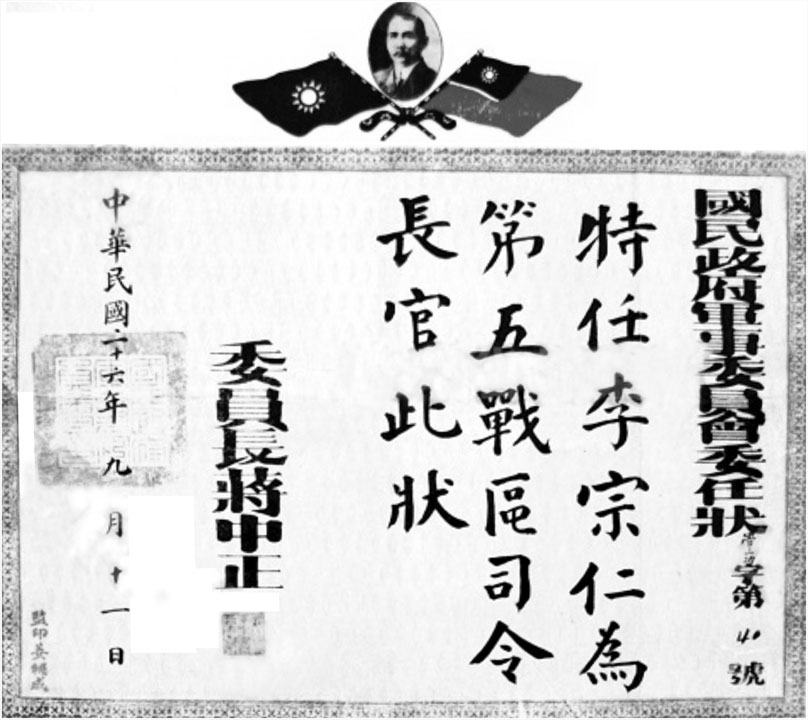 國民政府軍事委員會委任狀
字第40號
特任李宗仁為
第五戰區司令
長官此狀
委員長蔣中正
中華民國二十六年九月十一日
監印